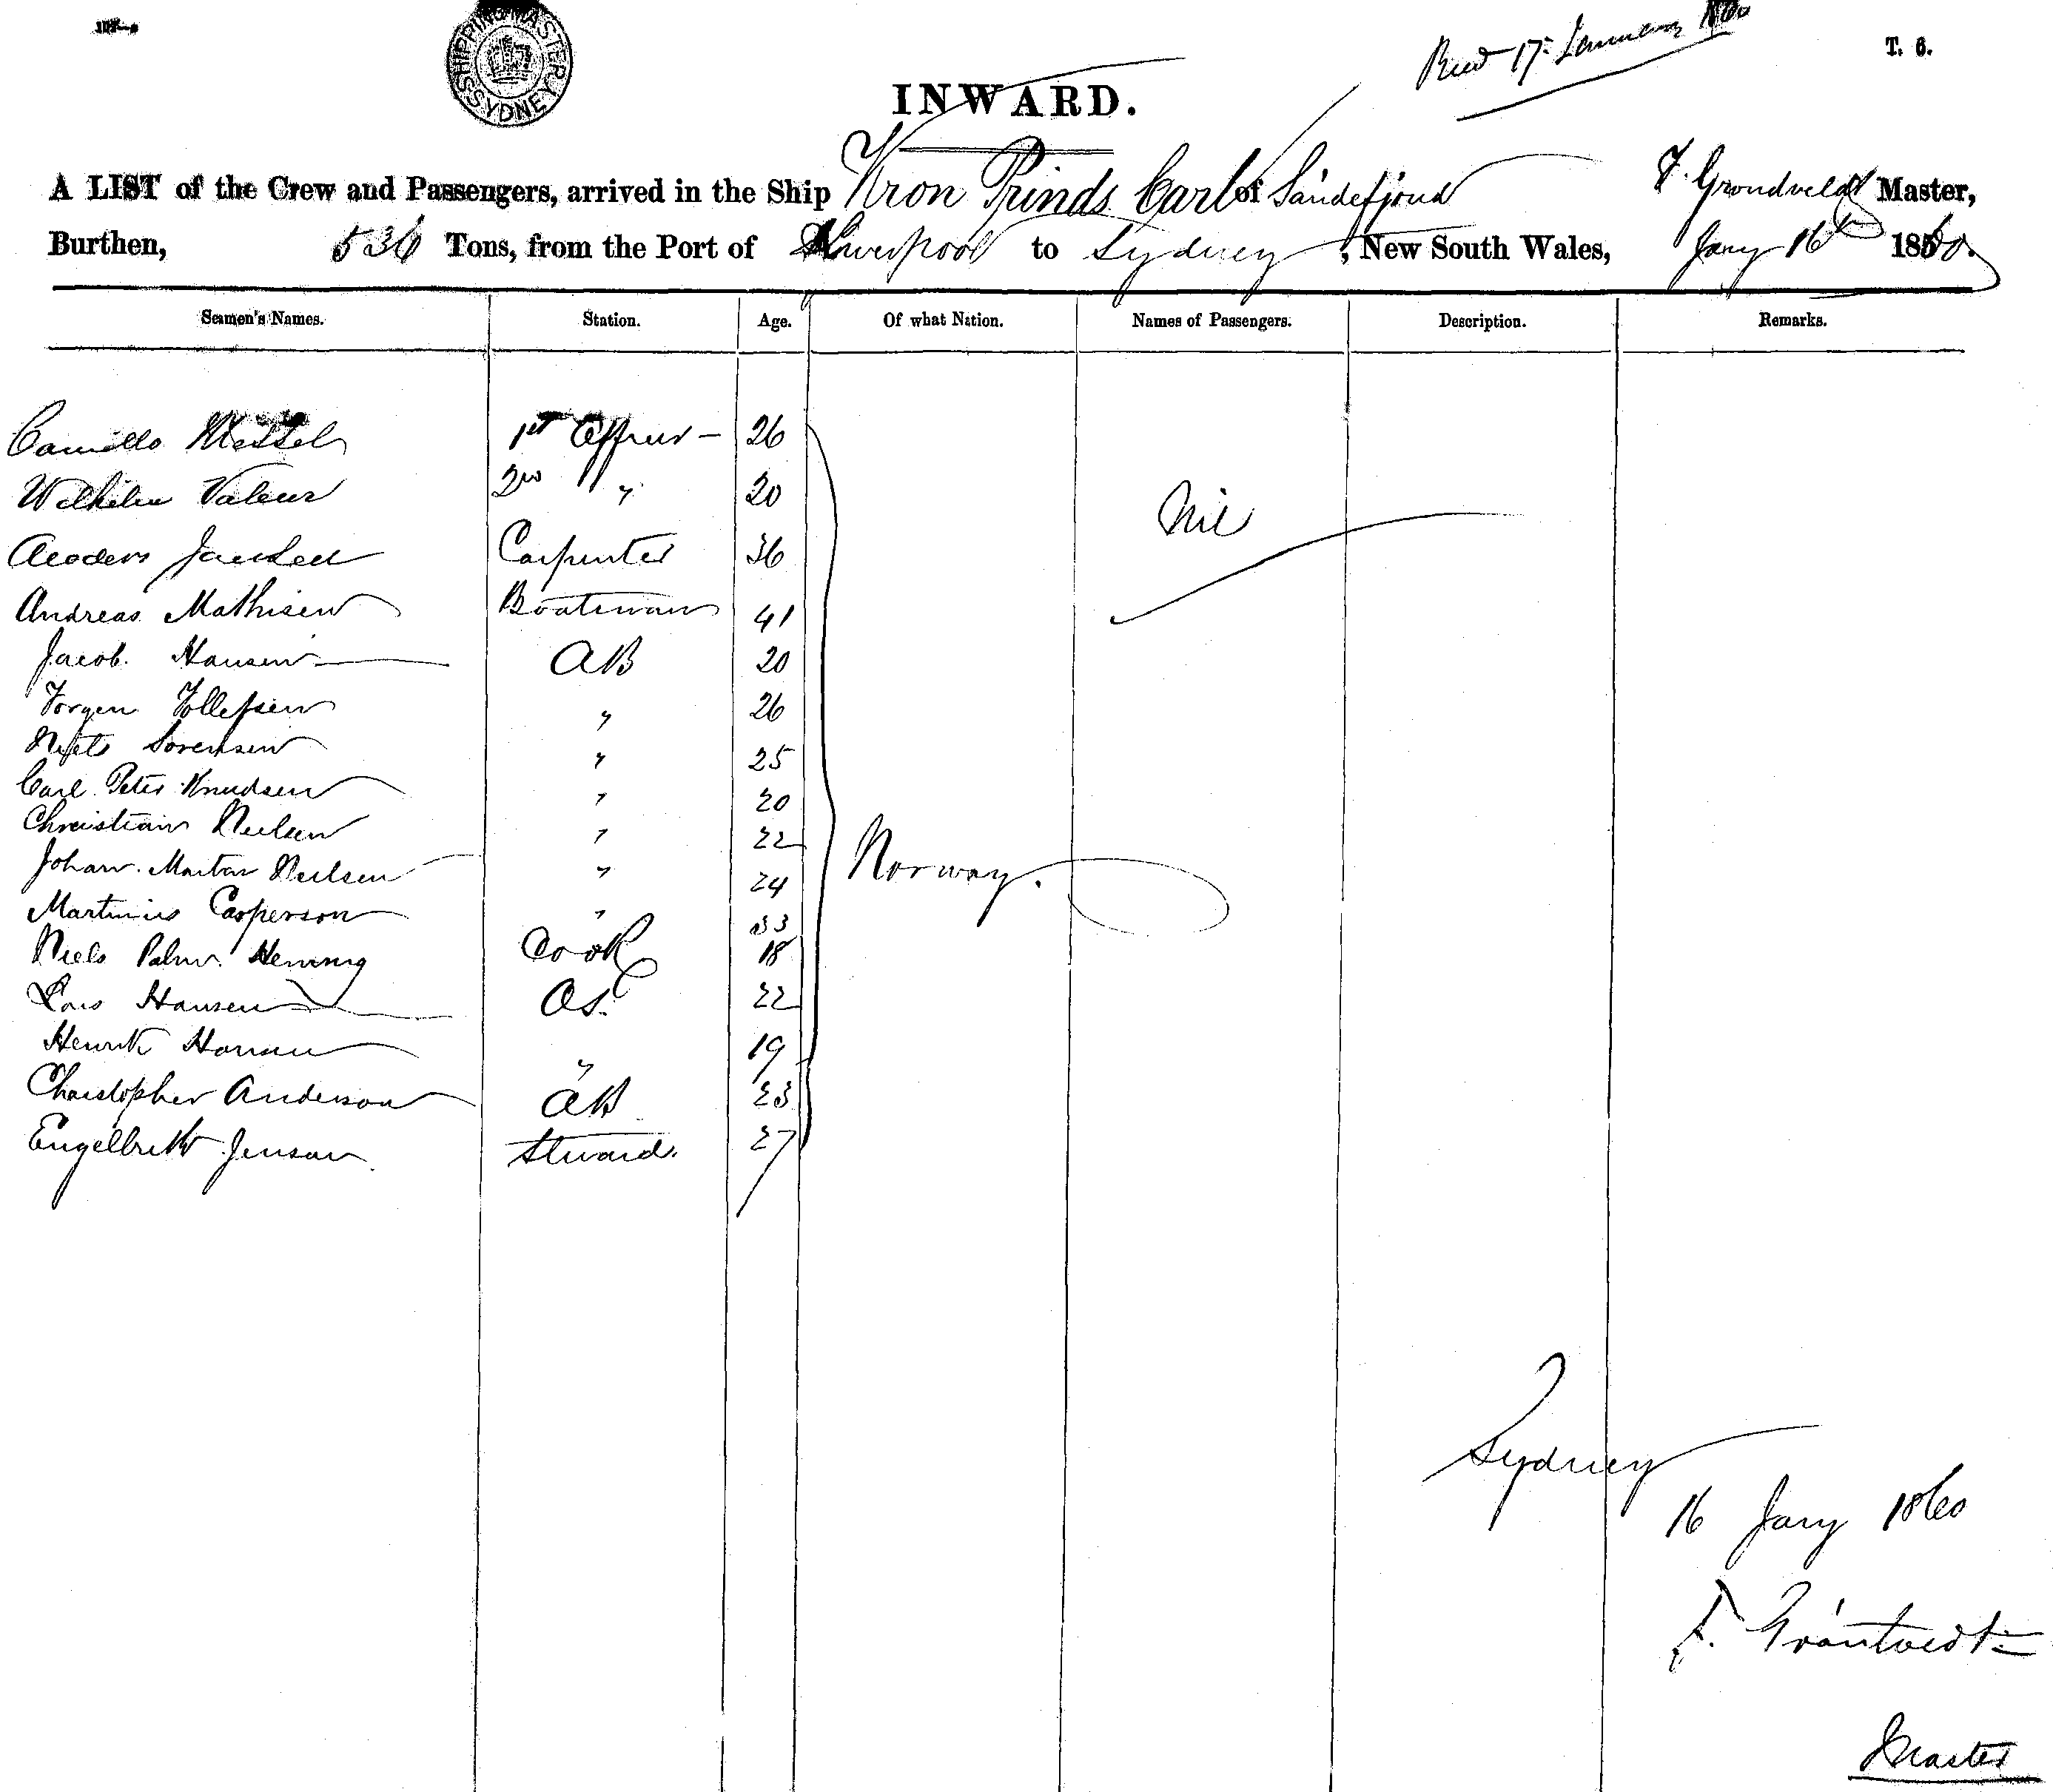 SHIPPING MASTER SYDNEY
Recd 17 January 1860
T. 6.
INWARD.
A LIST of the Crew and Passengers, arrived in the Ship Kron Prinds Carl of Sandefjord F. Grondveldt Master,
Burthen, 536 Tons, from the Port of Liverpool to Sydney, New South Wales, Jany 16th 1860.
Seamen's Names. Station. Age. Of what Nation. Names of Passengers. Description. Remarks.
Camillo 1st Officer - 26
Wilhelm Valeur 2nd " 20 Nil
Anders Jansen Carpenter 36
Andreas Mathisen Boatswain 41
Jacob Hansen AB 20
Jorgen Tollefsen " 26
Niels Sorensen " 25
Carl Peter Knudsen " 20
Christian Neilsen " 22
Johan Martin Neilsen " 24 Norway.
Martinus Casperson " 33
Niels Palm Henning Cook 18
Lars Hansen OS. 22
Henrik Hansen " 19
Christopher Anderson AB 23
Engelbrekt Jenson Steward. 27
Sydney
16 Jany 1860
F. Gröntvedt
Master